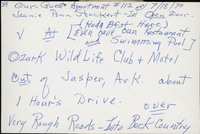 Our Guest Apartment #112 on 7/18/70
Jennie Ann Stockert In Open Door.
(Hods Best Have,)
V At [Even have Own Restaurant
and Swimming Pool]
Ozark Wild Life Club + Motel
Out of Jasper, Ark. about
1 Hours Drive. over
Very Rough Roads - Into Back Country